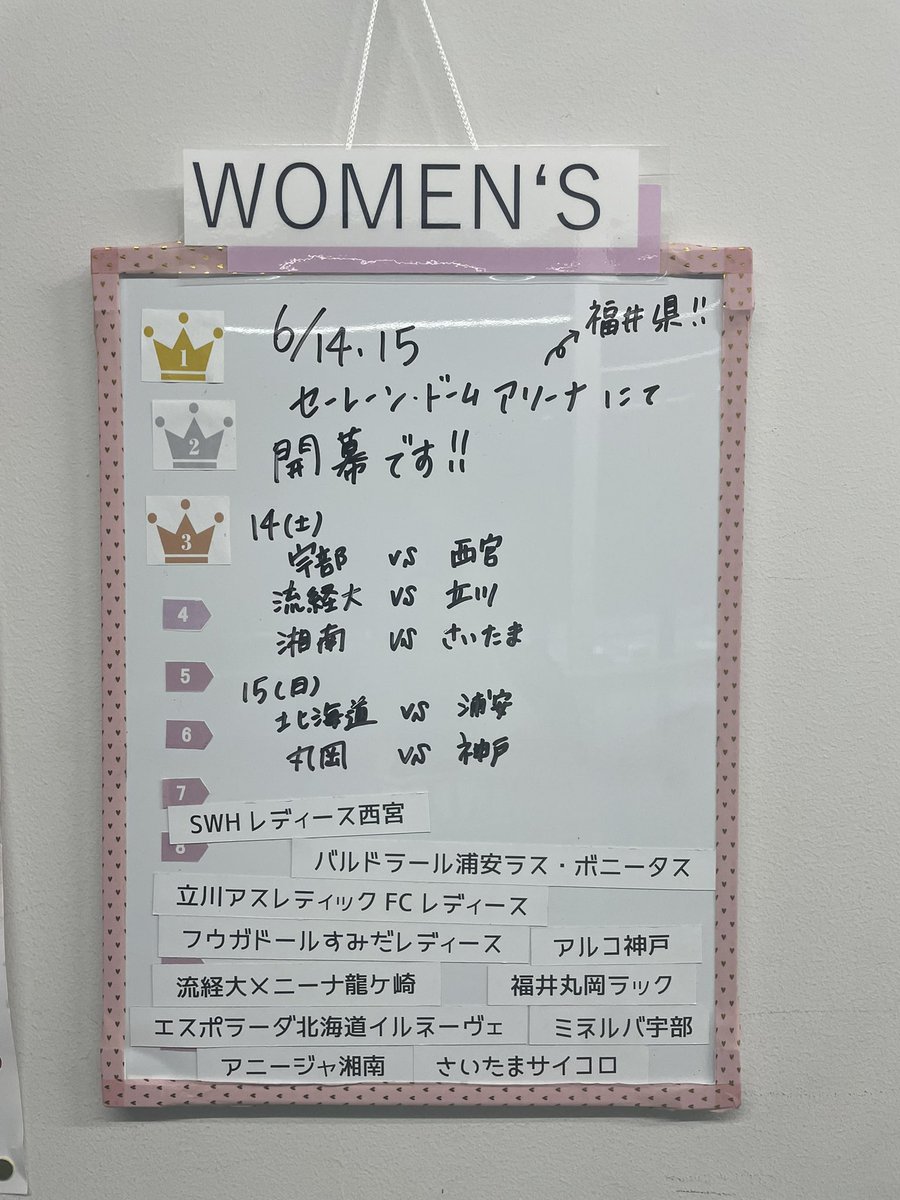 WOMEN'S
福井県!!
6/14.15
セーレン・ドームアリーナにて
開幕です!!
14(土)
宇部 vs 西宮
流経大 vs 立川
湘南 vs さいたま
15(日)
北海道 vs 浦安
丸岡 vs 神戸
1
2
3
4
5
6
7
8
SWHレディース西宮
バルドラール浦安ラス・ボニータス
立川アスレティックFCレディース
フウガドールすみだレディース
アルコ神戸
流経大×ニーナ龍ケ崎
福井丸岡ラック
エスポラーダ北海道イルネーヴェ
ミネルバ宇部
アニージャ湘南
さいたまサイコロ